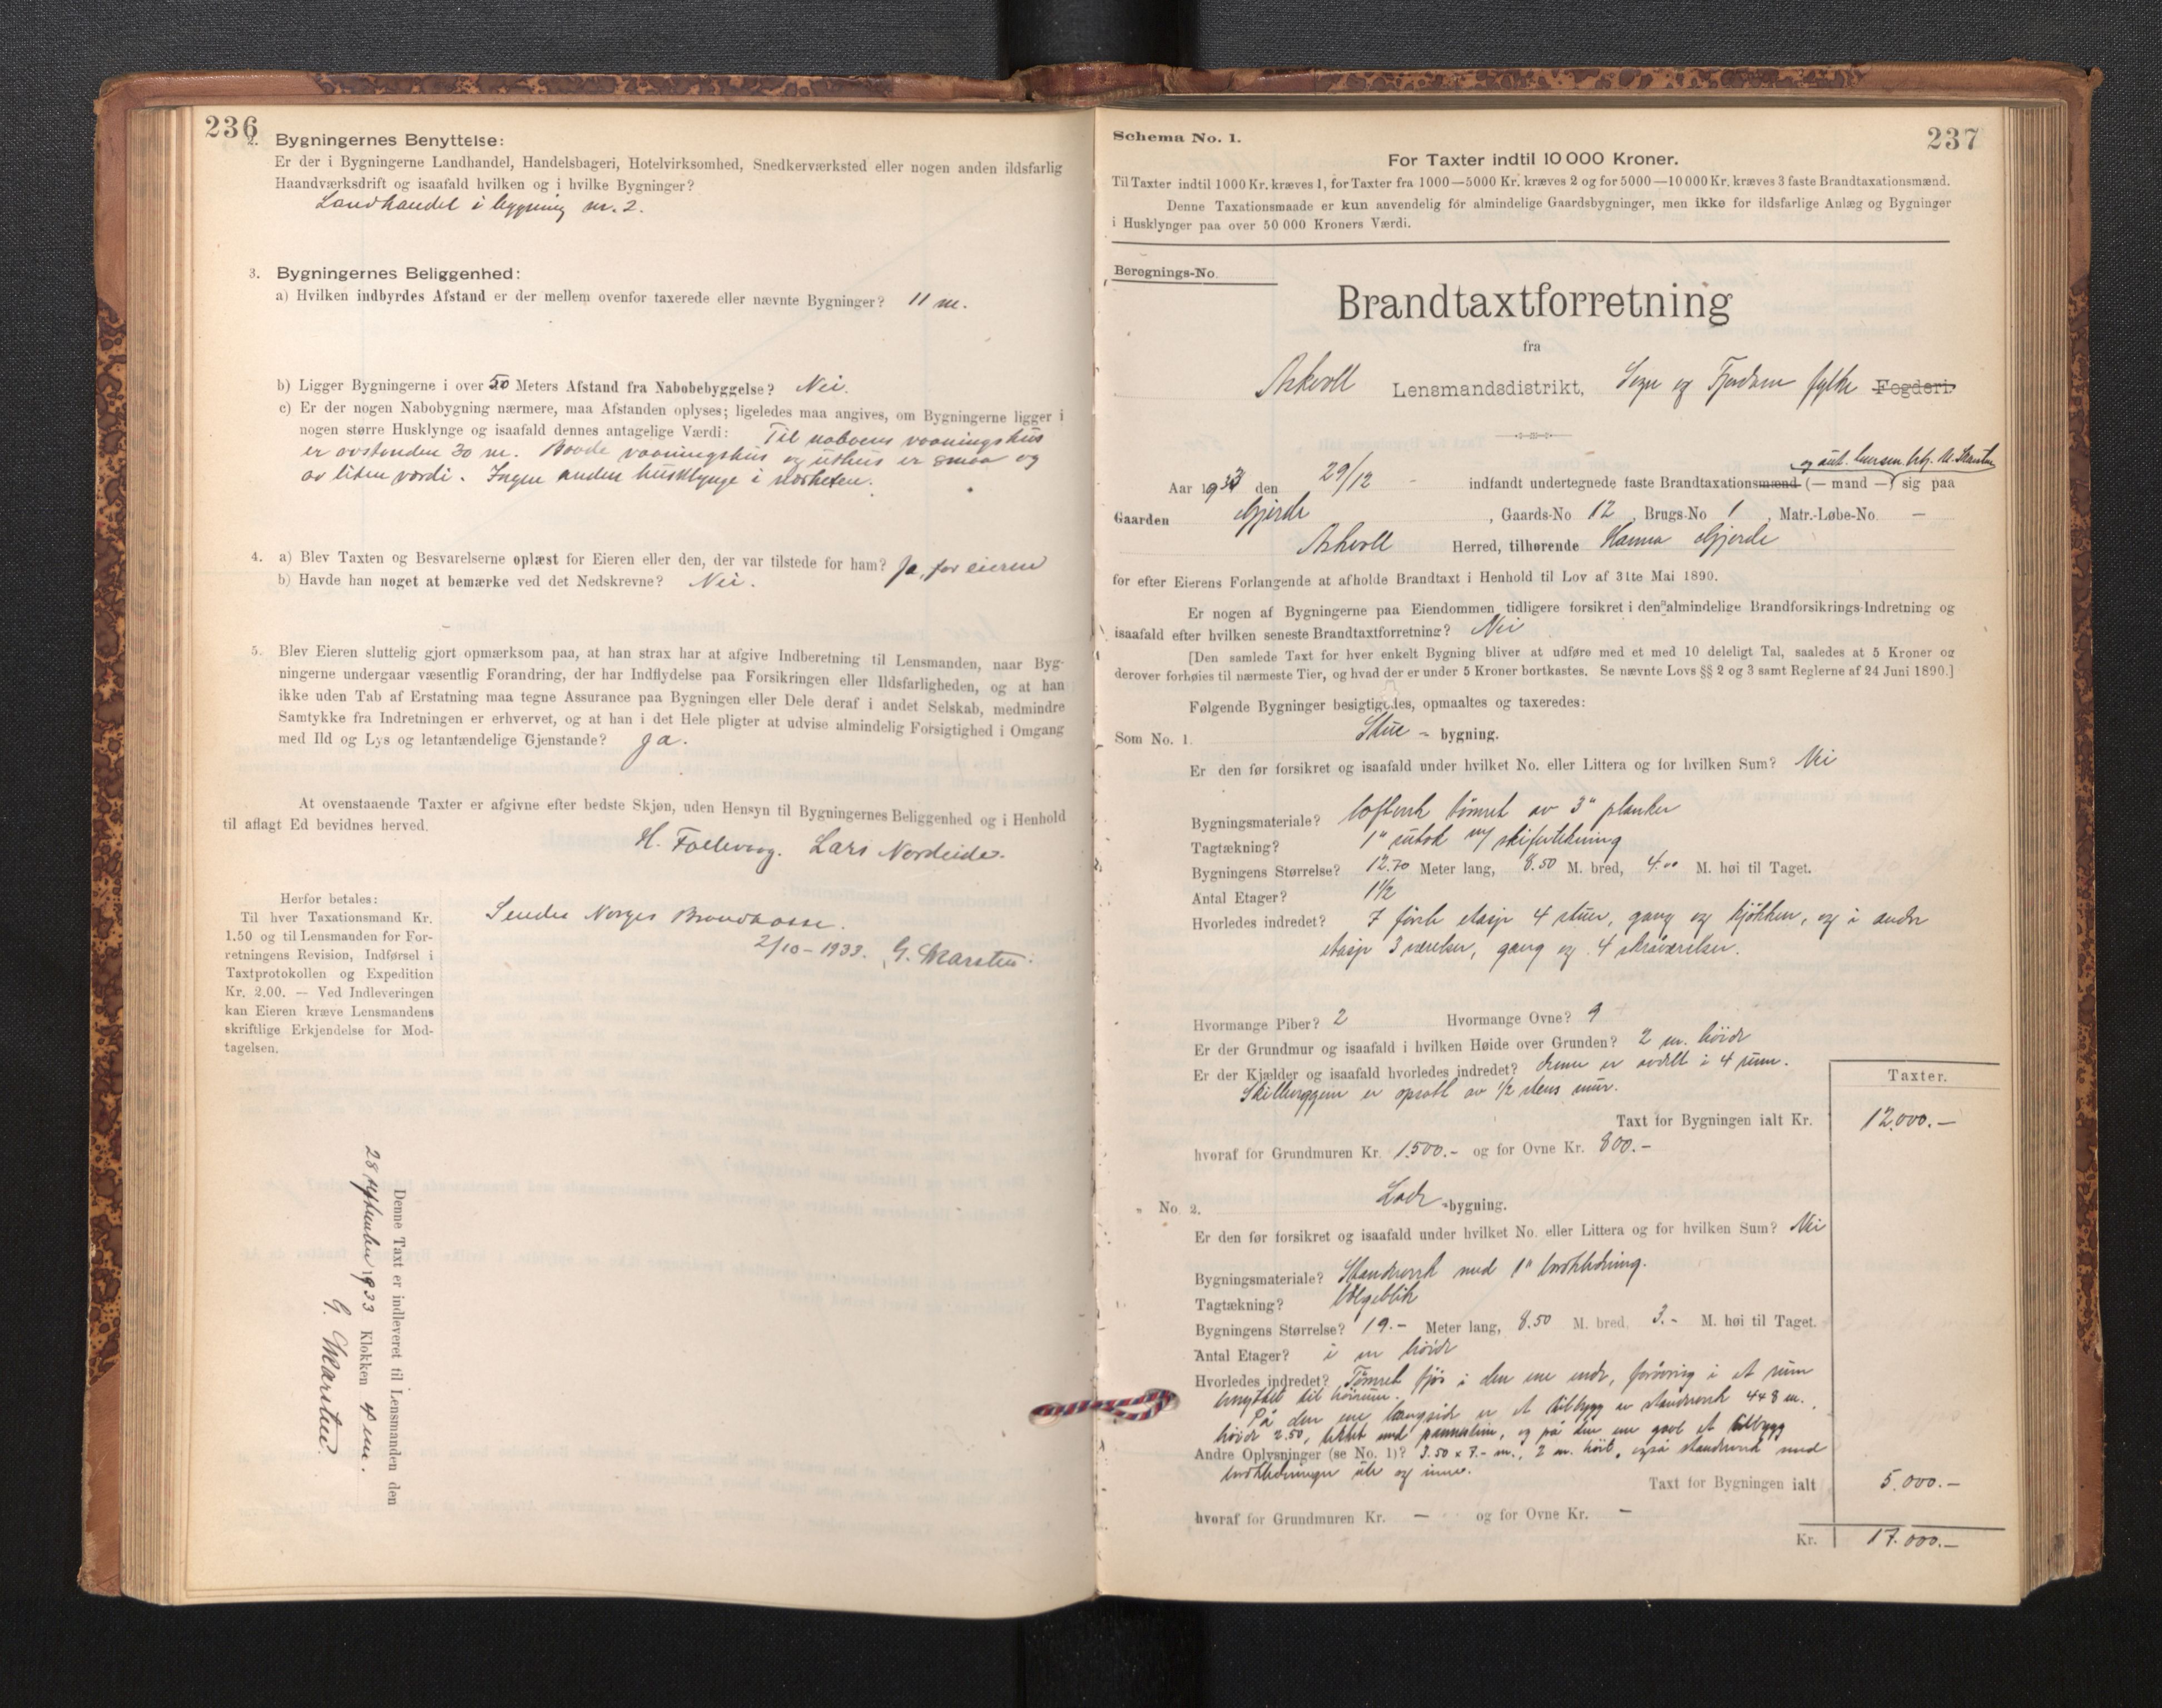 236
2. Bygningernes Benyttelse:
Er der i Bygningerne Landhandel, Handelsbageri, Hotelvirksomhed, Snedkerværksted eller nogen anden ildsfarlig
Haandværksdrift og isaafald hvilken og i hvilke Bygninger?
Landhandel i bygning nr. 2.
3. Bygningernes Beliggenhed:
a) Hvilken indbyrdes Afstand er der mellem ovenfor taxerede eller nævnte Bygninger? 11 m.
b) Ligger Bygningerne i over 50 Meters Afstand fra Nabobebyggelse? Nei.
c) Er der nogen Nabobygning nærmere, maa Afstanden oplyses; ligeledes maa angives, om Bygningerne ligger i
nogen større Husklynge og isaafald dennes antagelige Værdi: Til naboens vaaningshus
er avstanden 30 m. Baade vaaningshus og uthus er smaa og
av liten værdi. Ingen anden husklynge i nærheten.
4. a) Blev Taxten og Besvarelserne oplæst for Eieren eller den, der var tilstede for ham? Ja, for eieren
b) Havde han noget at bemærke ved det Nedskrevne? Nei.
5. Blev Eieren sluttelig gjort opmærksom paa, at han strax har at afgive Indberetning til Lensmanden, naar Byg-
ningerne undergaar væsentlig Forandring, der har Indflydelse paa Forsikringen eller Ildsfarligheden, og at han
ikke uden Tab af Erstatning maa tegne Assurance paa Bygningen eller Dele deraf i andet Selskab, medmindre
Samtykke fra Indretningen er erhvervet, og at han i det Hele pligter at udvise almindelig Forsigtighed i Omgang
med Ild og Lys og letantændelige Gjenstande? Ja.
At ovenstaaende Taxter er afgivne efter bedste Skjøn, uden Hensyn til Bygningernes Beliggenhed og i Henhold
til aflagt Ed bevidnes herved.
H. Follevaag. Lars Nordeide.
Herfor betales:
Til hver Taxationsmand Kr.
1.50 og til Lensmanden for For-
retningens Revision, Indførsel i
Taxtprotokollen og Expedition
Kr. 2.00. — Ved Indleveringen
kan Eieren kræve Lensmandens
skriftlige Erkjendelse for Mod-
tagelsen.
Sendes Norges Brandkasse.
2/10-1933. G. Marstein.
Denne Taxt er indleveret til Lensmanden den
28 september 1933 Klokken 4 em.
G. Marstein.
Schema No. 1.
237
For Taxter indtil 10 000 Kroner.
Til Taxter indtil 1000 Kr. kræves 1, for Taxter fra 1000—5000 Kr. kræves 2 og for 5000—10 000 Kr. kræves 3 faste Brandtaxationsmænd.
Denne Taxationsmaade er kun anvendelig for almindelige Gaardsbygninger, men ikke for ildsfarlige Anlæg og Bygninger
i Husklynger paa over 50 000 Kroners Værdi.
Beregnings-No.
Brandtaxtforretning
fra
Askvoll Lensmandsdistrikt, Sogn og Fjordane fylke Fogderi.
Aar 1933 den 29/12 indfandt undertegnede faste Brandtaxationsmænd (— mand —) sig paa
Gaarden Gjerde, Gaards-No 12, Brugs-No 1, Matr.-Løbe-No. —
Askvoll Herred, tilhørende Hanna Gjerde
for efter Eierens Forlangende at afholde Brandtaxt i Henhold til Lov af 31te Mai 1890.
Er nogen af Bygningerne paa Eiendommen tidligere forsikret i den almindelige Brandforsikrings-Indretning og
isaafald efter hvilken seneste Brandtaxtforretning? Nei
[Den samlede Taxt for hver enkelt Bygning bliver at udføre med et med 10 deleligt Tal, saaledes at 5 Kroner og
derover forhøies til nærmeste Tier, og hvad der er under 5 Kroner bortkastes. Se nævnte Lovs §§ 2 og 3 samt Reglerne af 24 Juni 1890.]
Følgende Bygninger besigtigedes, opmaaltes og taxeredes:
Som No. 1. Stue-bygning.
Er den før forsikret og isaafald under hvilket No. eller Littera og for hvilken Sum? Nei
Bygningsmateriale? lofterk tømret av 3" planker
Tagtækning? 1" sutak m/ skifertekning
Bygningens Størrelse? 12.70 Meter lang, 8.50 M. bred, 4.00 M. høi til Taget.
Antal Etager? 1½
Hvorledes indredet? I første etasje 4 stuer, gang og kjøkken, og i andre
etasje 3 værelser, gang og 4 skråværelser.
Hvormange Piber? 2 Hvormange Ovne? 9
Er der Grundmur og isaafald i hvilken Høide over Grunden? 2 m. høide
Er der Kjælder og isaafald hvorledes indredet? denne er avdelt i 4 rum.
Skilleveggene er opsatt av ½ stens mur.
Taxter.
Taxt for Bygningen ialt Kr. 12.000.—
hvoraf for Grundmuren Kr. 1.500.- og for Ovne Kr. 800.—
„ No. 2. Lade-bygning.
Er den før forsikret og isaafald under hvilket No. eller Littera og for hvilken Sum? Nei
Bygningsmateriale? Standverk med 1" bordkledning.
Tagtækning? Bølgeblik
Bygningens Størrelse? 19.- Meter lang, 8.50 M. bred, 3.- M. høi til Taget.
Antal Etager? i en høide
Hvorledes indredet? Tømret fjøs i den ene ende, forøvrig i et rum
benyttet til høirum.
På den ene langside er et tilbygg av standverk 4x8 m.,
høide 2.50, tekket med pannestein, og på den ene gavl et tilbygg
Andre Oplysninger (se No. 1)? 3.50 x 7.- m., 2 m. høit, også standverk med
bordkledninger ute og inne.
Taxt for Bygningen ialt 5.000.—
hvoraf for Grundmuren Kr. — og for Ovne Kr. —
Kr. 17.000.—